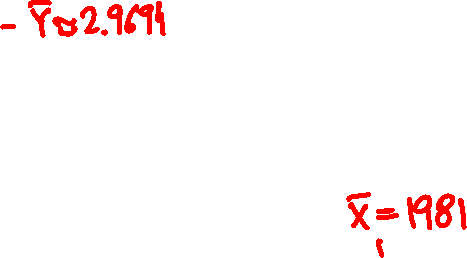 - Ȳ≈2.9694
X̄=1981